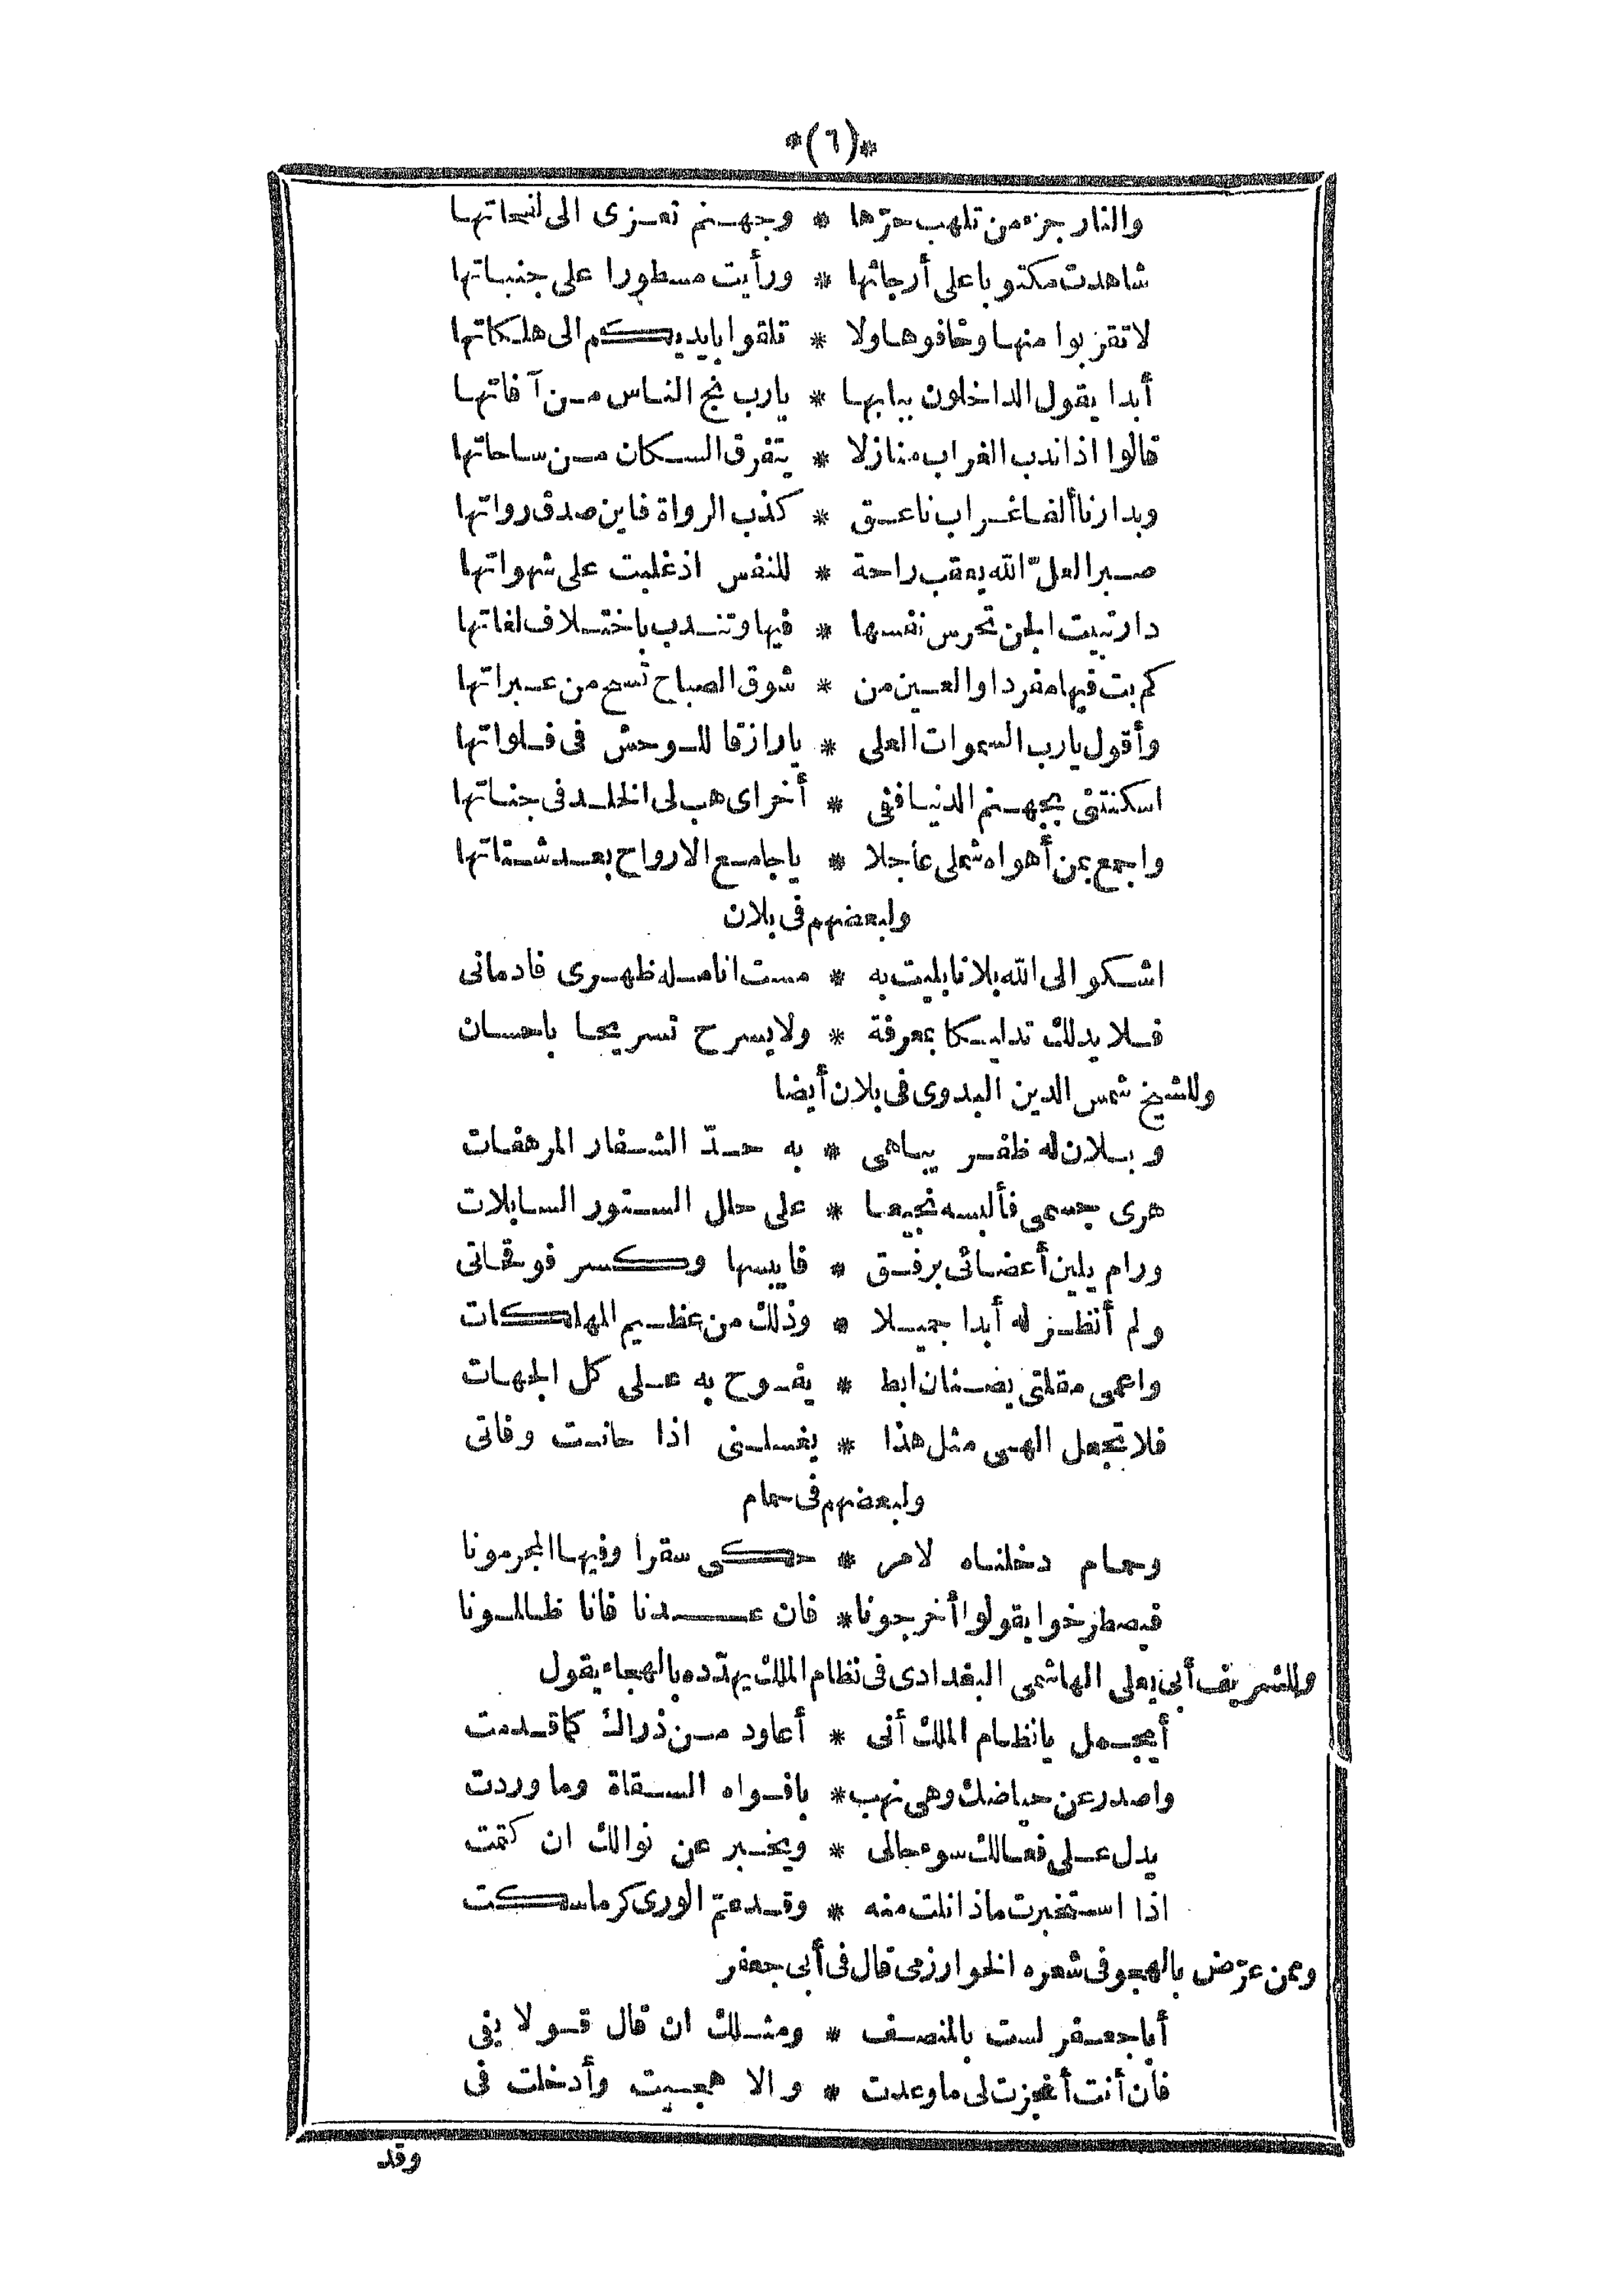 *(٦)*
والنار جزء من تلهب حرّها * وجهنم تعزى الى لفحاتها
شاهدت مكتوبا على أرجائها * ورأيت مسطورا على جنباتها
لا تقربوا منها وخافوها ولا * تلقوا بايديكم الى هلكاتها
أبدا يقول الداخلون ببابها * يارب نج الناس من آفاتها
قالوا اذا ندب الغراب منازلا * يتفرق السكان من ساحاتها
وبدارنا ألفا غراب ناعق * كذب الرواة فاين صدق رواتها
صبرا لعلّ الله يعقب راحة * للنفس اذ غلبت على شهواتها
دار تبيت الجن تحرس نفسها * فيها وتندب باختلاف لغاتها
كم بت فيها مفردا والعين من * شوق الصباح تسح من عبراتها
وأقول يارب السموات العلى * يا رازقا للوحش فى فلواتها
اسكنتنى بجهنم الدنيا ففى * أخراى هب لى الخلد فى جناتها
واجمع بمن أهواه شملى عاجلا * يا جامع الارواح بعد شتاتها
ولبعضهم فى بلان
اشكو الى الله بلانا بليت به * مست انامله ظهرى فادمانى
فلا يدلك تدليكا بمعرفة * ولا يسرح تسريحا باحسان
وللشيخ شمس الدين البدوى فى بلان أيضا
وبلان له ظفر يباهى * به حدّ الشفار المرهفات
هرى جسمى فألبسه نجيعا * على حلل الستور السابلات
ورام يلين أعضائى برفق * فايبسها وكسر فوقحاتى
ولم أنظر له أبدا جميلا * وذلك من عظيم المهلكات
واعمى مقلتى بضنان ابط * يفوح به على كل الجهات
فلا تجعل الهى مثل هذا * يغسلنى اذا حانت وفاتى
ولبعضهم فى حمام
وحمام دخلناه لامر * حكى سقرا وفيها المجرمونا
فيصطرخوا يقولوا أخرجونا * فان عدنا فانا ظالمونا
وللشريف أبى يعلى الهاشمى البغدادى فى نظام الملك يهدّده بالهجاء يقول
أيجمل يا نظام الملك أنى * أعاود من ذراك كما قدمت
واصدر عن حياضك وهى نهب * بافواه السقاة وما وردت
يدل على فعالك سوء حالى * ويخبر عن نوالك ان كتمت
اذا استخبرت ماذا نلت منه * وقد عمّ الورى كرما سكت
وممن عرّض بالهجو فى شعره الخوارزمى قال فى أبى جعفر
أبا جعفر لست بالمنصف * ومثلك ان قال قولا يفى
فان أنت أنجزت لى ما وعدت * والا هجيت وأدخلت فى
وقد